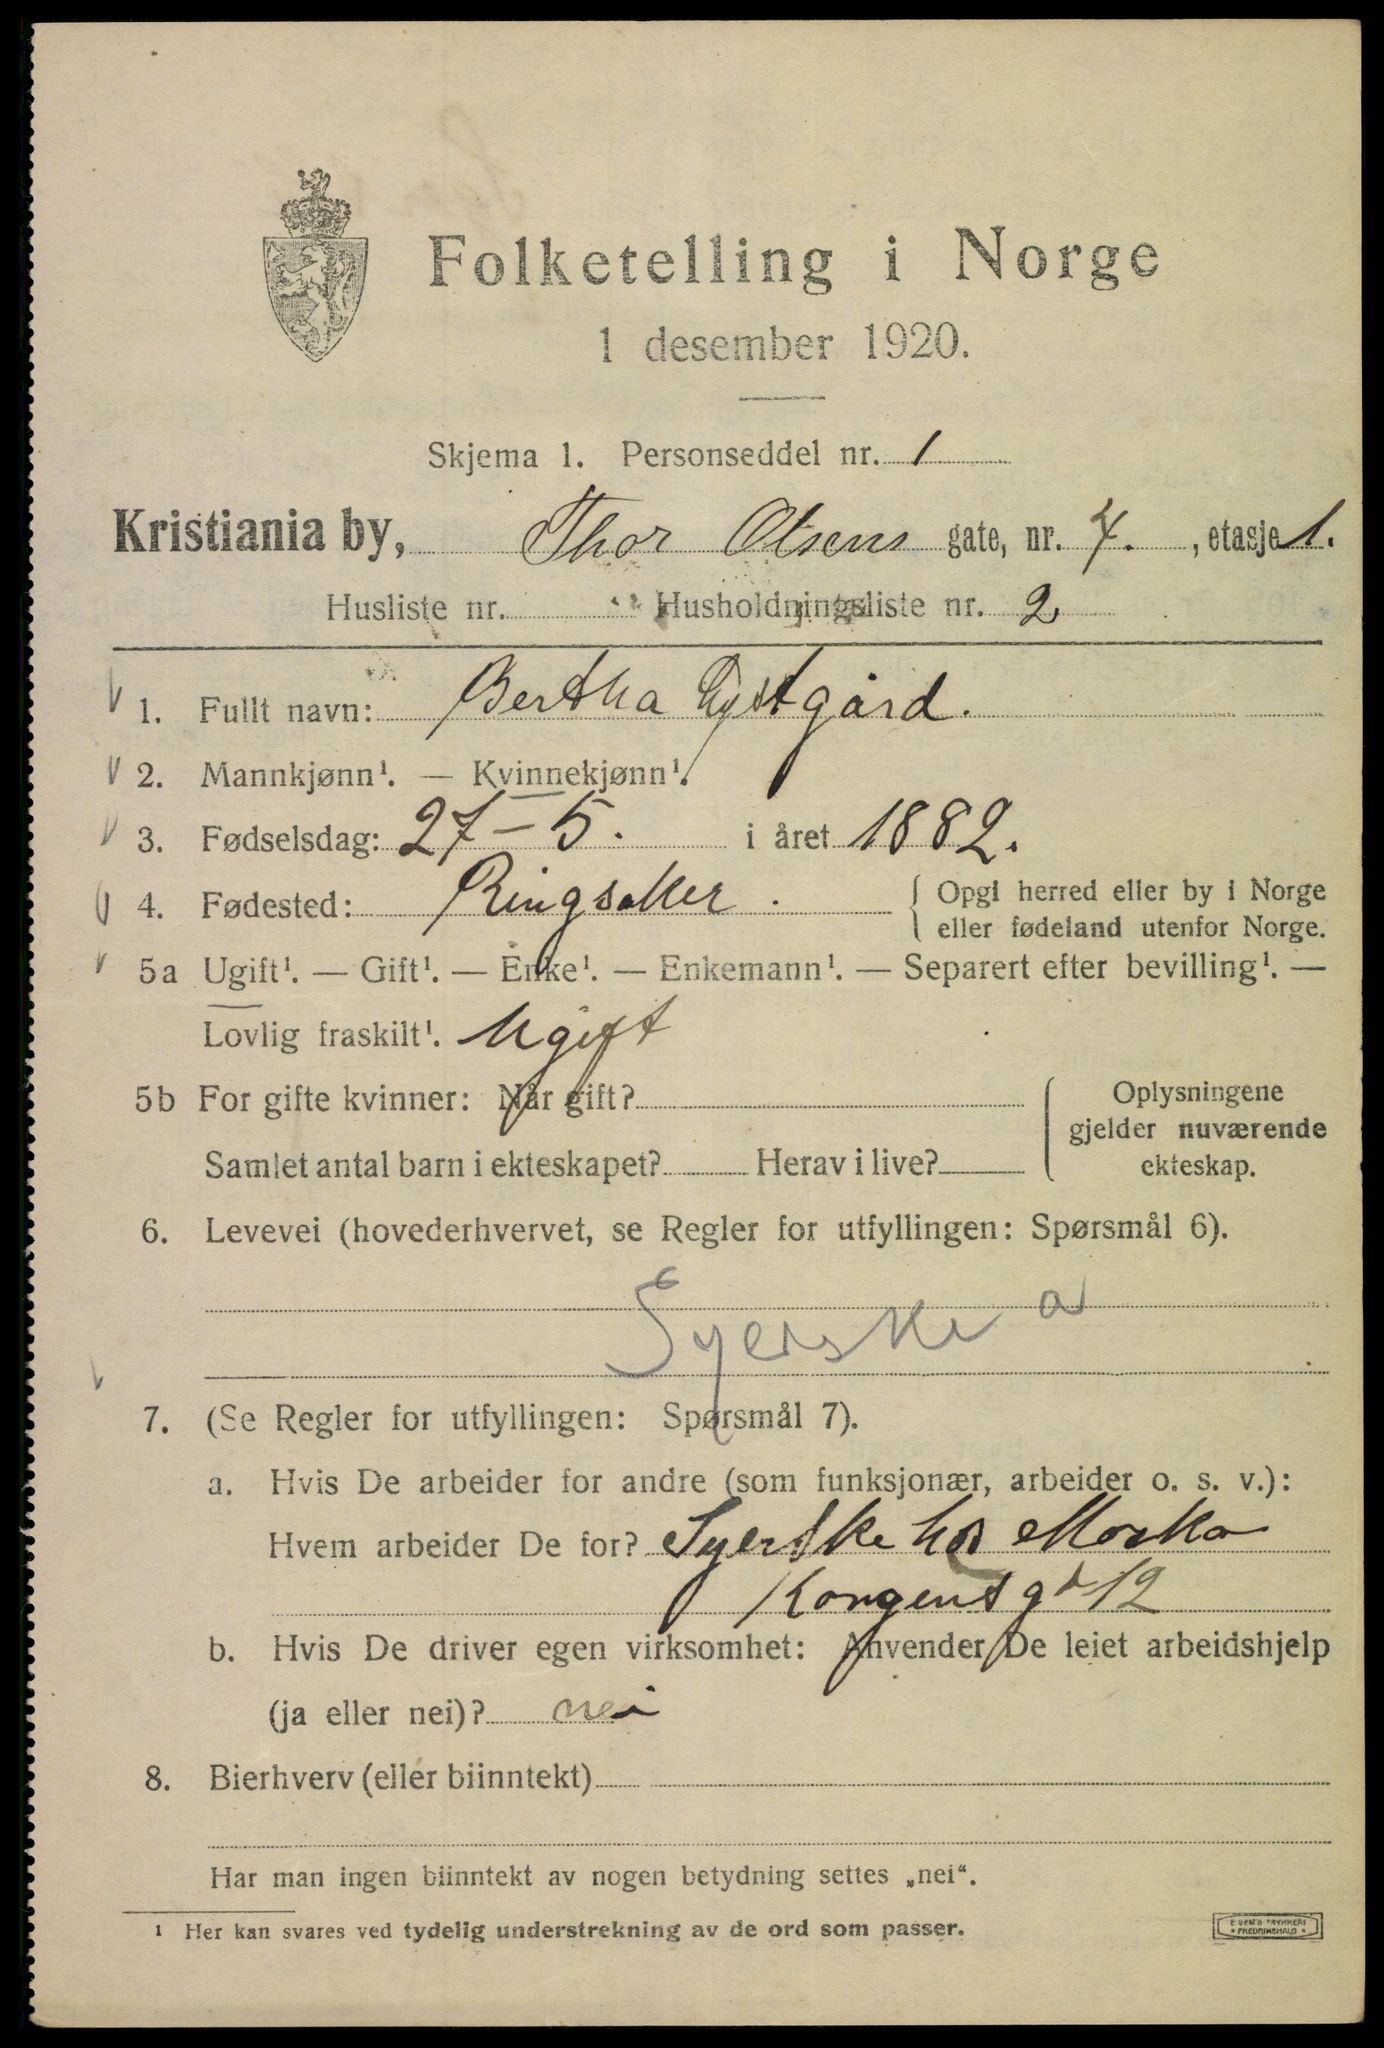 Folketelling i Norge
1 desember 1920.
Skjema 1. Personseddel nr. 1
Kristiania by, Thor Olsens gate, nr. 4. , etasje 1.
Husliste nr. Husholdningsliste nr. 2
1. Fullt navn: Bertha Nystgård.
2. Mannkjønn¹. — Kvinnekjønn¹.
3. Fødselsdag: 27-5. i året 1882.
4. Fødested: Ringsaker. { Opgi herred eller by i Norge
eller fødeland utenfor Norge.
5a Ugift¹. — Gift¹. — Enke¹. — Enkemann¹. — Separert efter bevilling¹. —
Lovlig fraskilt¹. Ugift
5b For gifte kvinner: Når gift? { Oplysningene
gjelder nuværende
Samlet antal barn i ekteskapet? Herav i live? ekteskap.
6. Levevei (hovederhvervet, se Regler for utfyllingen: Spørsmål 6).
Syerske a
7. (Se Regler for utfyllingen: Spørsmål 7).
a. Hvis De arbeider for andre (som funksjonær, arbeider o. s. v.):
Hvem arbeider De for? Syerske hos
Kongens gd 12
b. Hvis De driver egen virksomhet: Anvender De leiet arbeidshjelp
(ja eller nei)? nei
8. Bierhverv (eller biinntekt)
Har man ingen biinntekt av nogen betydning settes „nei“.
¹ Her kan svares ved tydelig understrekning av de ord som passer.
E SEM'S TRYKKERI
* FREDRIKSHALD *